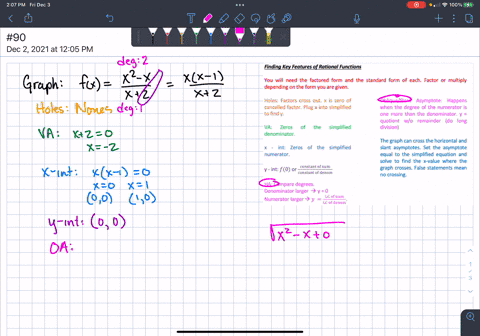 2:07 PM Fri Dec 3
#90
Dec 2, 2021 at 12:05 PM
deg: 2
Graph: f(x) = x²-x / x+2 = x(x-1) / x+2
Holes: None
deg: 1
VA: x+2=0
x=-2
x-int: x(x-1)=0
x=0 x=1
(0,0) (1,0)
y-int: (0,0)
OA:
Finding Key Features of Rational Functions
You will need the factored form and the standard form of each. Factor or multiply depending on the form you are given.
Holes: Factors cross out. x is zero of cancelled factor. Plug x into simplified to find y.
VA: Zeros of the simplified denominator.
x - int: Zeros of the simplified numerator.
y - int: f(0) or
Compare degrees.
Denominator larger → y=0
Numerator larger → y =
Asymptote: Happens when the degree of the numerator is one more than the denominator. y = quotient w/o remainder (do long division)
The graph can cross the horizontal and slant asymptotes. Set the asymptote equal to the simplified equation and solve to find the x-value where the graph crosses. False statements mean no crossing.
x² - x + 0